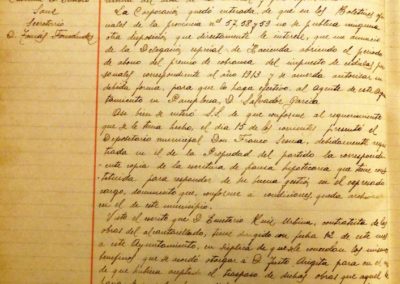 José
Secretario
D. Tomás Fernández
La Corporación quedó enterada de que en los Boletines
oficiales de la provincia nº 57, 58 y 59 no se publica ninguna
otra disposición que directamente le interese, que un anuncio
de la Delegación especial de Hacienda abriendo el periodo
de abono del premio de cobranza del impuesto de cédulas per
sonales correspondiente al año 1913 y se acuerda autorizar en
debida forma, para que lo haga efectivo al agente de este Ayun
tamiento en Pamplona, D. Salvador García
Así bien se enteró S.S. de que conforme al requerimiento
que se le tenía hecho, el día 15 de los corrientes presentó el
Depositario municipal Don Franco Serona, debidamente regis
trada en el de la Propiedad del partido la correspondi
ente copia de la escritura de fianza hipotecaria que tiene cons
tituida para responder de su buena gestión en el expresado
cargo, documento que conforme a condiciones, queda
en el de este municipio.
Visto el escrito que D. Emeterio Ruiz Urbina, contratista de las
obras del alcantarillado, tiene dirigido con fecha 12 de este mes
a este Ayuntamiento, en súplica de que se le concedan los mismos
beneficios que se acordó otorgar a D. Justo Angita para en el
de que hubiera aceptado el traspaso de dichas obras que aquel le